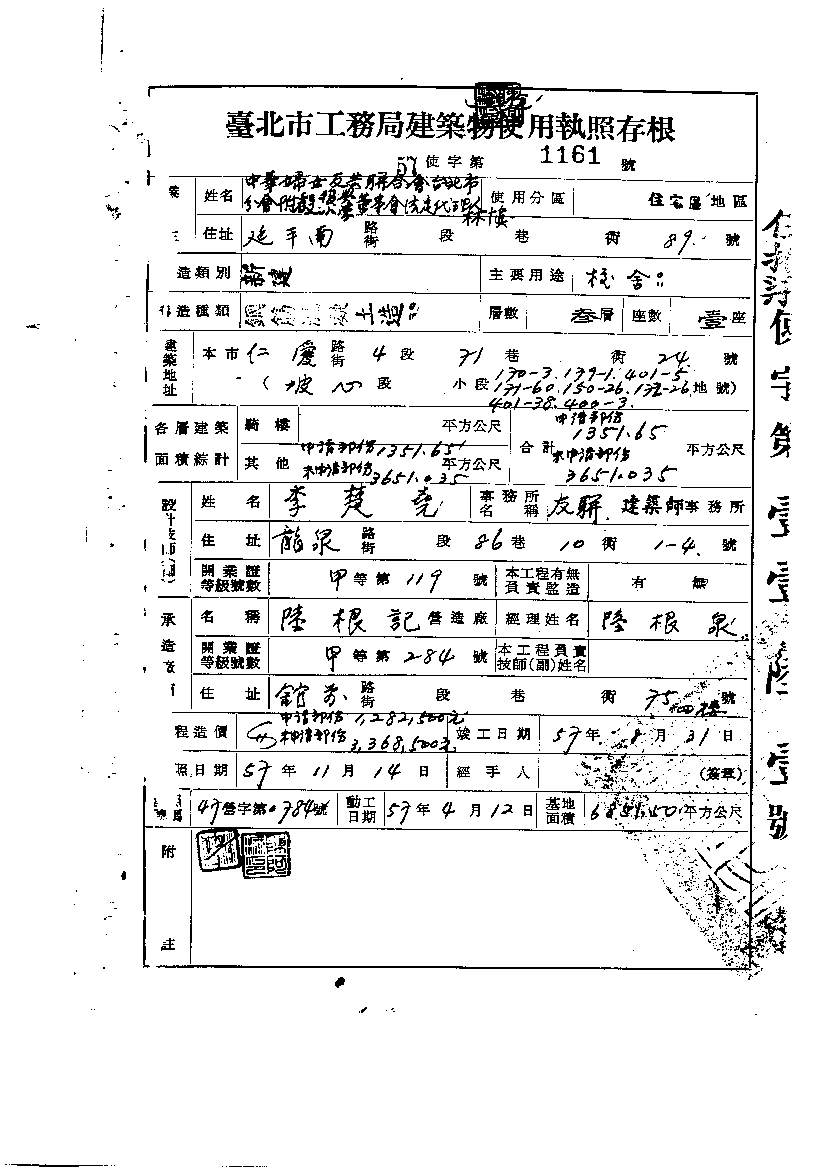 臺北市工務局建築物使用執照存根
57 使字第 1161 號
姓名 中華婦女反共聯合會台北市 使用分區 住宅區地區
分會附設 董事會法定代理人 林慎
住址 延平南 路街 段 巷 衖 89 號
造類別 新建 主要用途 校舍
造種類 土造 層數 叁層 座數 壹座
建築地址 本市 仁愛 路街 4 段 71 巷 衖 24 號
( 坡心 段 小段 170-3. 139-1. 401-5
171-60. 150-26. 地號)
401-38. 400-3.
各層建築面積綜計 騎樓 平方公尺 合計 申請部份 1351.65
其他 申請部份 1351.65 平方公尺 未申請部份 平方公尺
未申請部份 3651.035 3651.035
姓名 李楚堯 事務所名稱 友聯 建築師事務所
住址 龍泉 路街 段 86 巷 10 衖 1-4 號
開業證等級號數 甲等第 119 號 本工程有無負責監造 有 無
承造 名稱 陸根記 營造廠 經理姓名 陸根泉
開業證等級號數 甲等第 284 號 本工程負責技師(副)姓名
住址 館前 路街 段 巷 衖 75 號 四樓
程造價 申請部份 1,282,500元 竣工日期 57年 8月 31日
未申請部份 3,368,500元
照日期 57年 11月 14日 經手人 (簽章)
47營字第0784號 動工日期 57年 4月 12日 基地面積 平方公尺
附註
使字第壹壹陸壹號